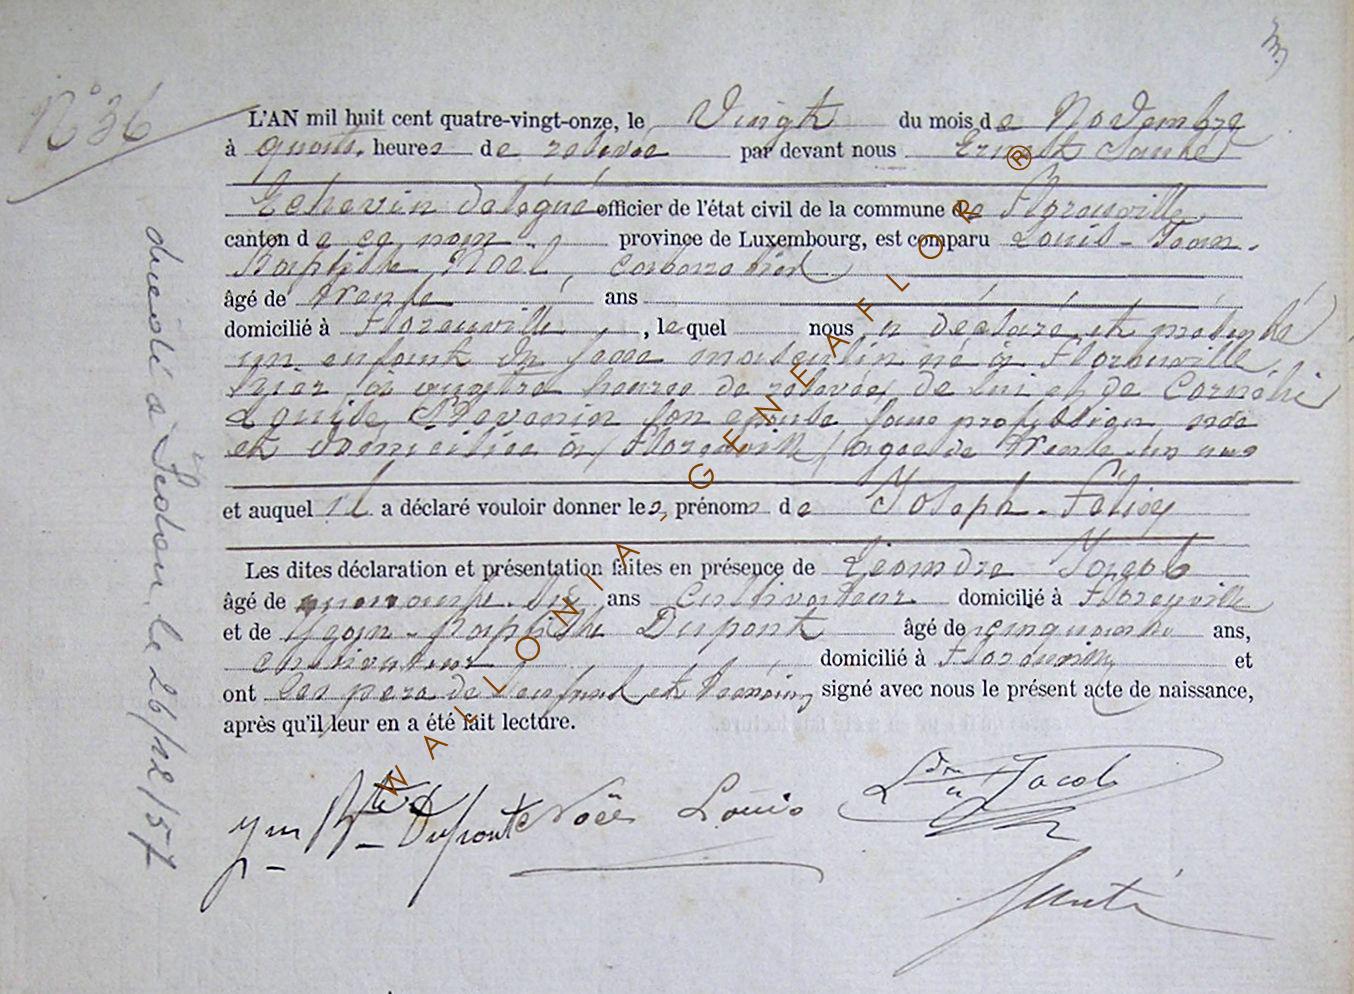 N° 36
L'AN mil huit cent quatre-vingt-onze, le Vingt du mois de Novembre
à quatre heures de relevée par devant nous Ernest
Echevin délégué officier de l'état civil de la commune de Florenville
canton de ce nom, province de Luxembourg, est comparu Louis-Jean-
Baptiste Noël,
âgé de trente ans
domicilié à Florenville, lequel nous a déclaré et présenté
un enfant du sexe masculin né à Florenville
hier à quatre heures de relevée, de lui et de Cornélie
Louise Thevenin son épouse sans profession née
et domiciliée à Florenville, âgée de trente un ans
et auquel il a déclaré vouloir donner les prénoms de Joseph-Félicy
Les dites déclaration et présentation faites en présence de Léandre Jacob
âgé de quarante six ans Cultivateur domicilié à Florenville
et de Jean-Baptiste Dupont âgé de cinquante ans,
cultivateur domicilié à Florenville et
ont les père de l'enfant et témoins signé avec nous le présent acte de naissance,
après qu'il leur en a été fait lecture.
Jn Bte Dupont
Noël Louis
Ldre Jacob
décédé à Sedan, le 26/12/57
WALLONIA-GENEAFLOR®